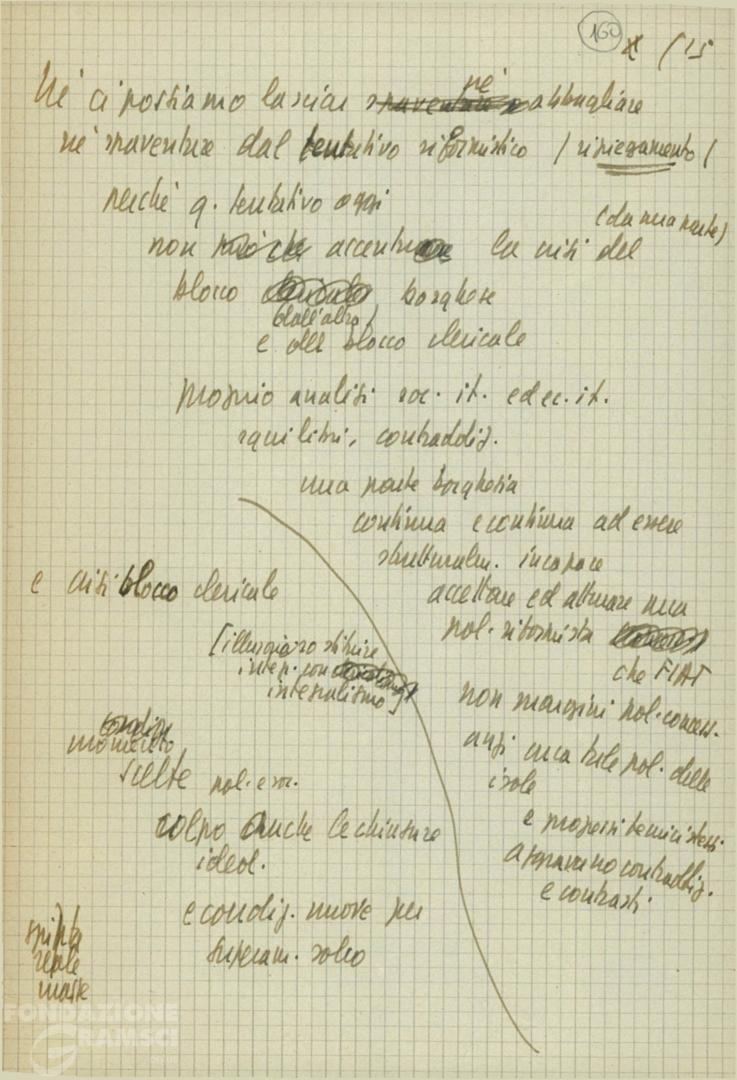 160
(15
Né ci possiamo lasciar spaventare né abbagliare
né spaventare dal tentativo riformistico (ripiegamento)
perché q. tentativo oggi
(da una parte)
non può che accentuare la crisi del
blocco borghese
(dall'altra)
e del blocco clericale
Proprio analisi soc. it. ed ec. it.
squilibri, contraddiz.
una parte borghesia
continua e continua ad essere
strutturalm. incapace
accettare ed attuare una
pol. riformista
che FIAT
non margini pol. concess.
anzi una tale pol. delle
isole
e progressi tecnici stessi
aggravano contraddiz.
e contrasti
e crisi blocco clericale
[illusorio sostituire
integ. con
integralismo]
momento
scelte pol. e soc.
colpo anche le chiusure
ideol.
e condiz. nuove per
superam. solco
spinta
reale
masse
FONDAZIONE
GRAMSCI